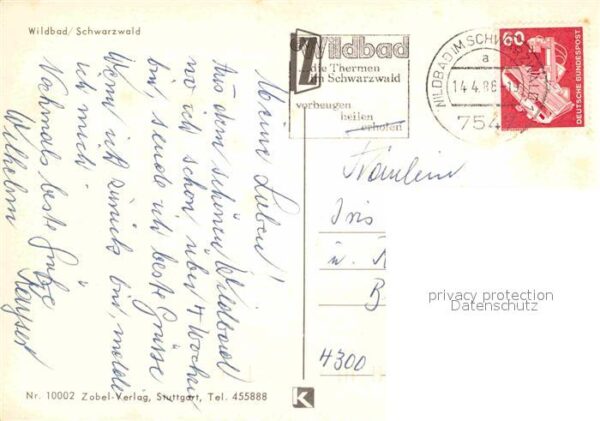 Wildbad/Schwarzwald
Meine Lieben!
Aus dem schönen Wildbad
wo ich schon über 4 Wochen
bin sende ich beste Grüsse
Wenn ich zurück bin, melde
ich mich
Nochmals beste Grüße
Wilhelm Kayser
Nr. 10002 Zobel-Verlag, Stuttgart, Tel. 455888
K
Wildbad
die Thermen
im Schwarzwald
vorbeugen
heilen
erholen
WILDBAD IM SCHW
a
14.4.86
7547
60
DEUTSCHE BUNDESPOST
Fräulein
Iris
u.
B
4300
privacy protection
Datenschutz